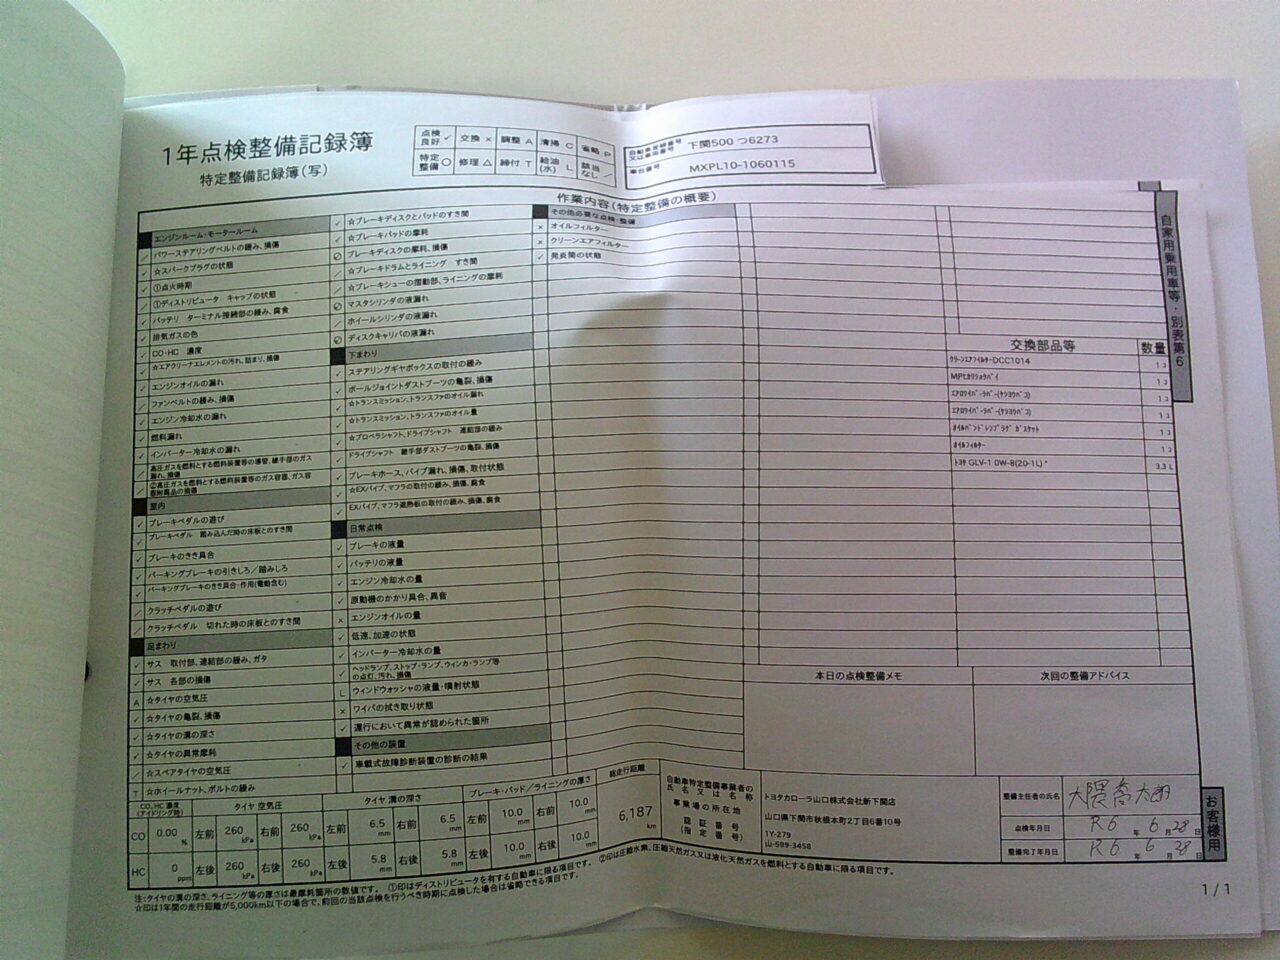 1年点検整備記録簿
特定整備記録簿(写)
点検良好 ✓ 交換 × 調整 A 清掃 C 省略 P
特定整備 ○ 修理 △ 締付 T 給油(水) L 該当なし ／
自動車登録番号又は車両番号 下関500 つ6273
車台番号 MXPL10-1060115
作業内容(特定整備の概要)
エンジンルーム・モータールーム
パワーステアリングベルトの緩み、損傷
☆スパークプラグの状態
①点火時期
①ディストリビュータ キャップの状態
バッテリ ターミナル接続部の緩み、腐食
排気ガスの色
CO・HC 濃度
☆エアクリーナエレメントの汚れ、詰まり、損傷
エンジンオイルの漏れ
ファンベルトの緩み、損傷
エンジン冷却水の漏れ
燃料漏れ
インバーター冷却水の漏れ
高圧ガスを燃料とする燃料装置等の導管、継手部のガス漏れ、損傷
②高圧ガスを燃料とする燃料装置等のガス容器、ガス容器附属品の損傷
室内
ブレーキペダルの遊び
ブレーキペダル 踏み込んだ時の床板とのすき間
ブレーキのきき具合
パーキングブレーキの引きしろ／踏みしろ
パーキングブレーキのきき具合・作用(電動含む)
クラッチペダルの遊び
クラッチペダル 切れた時の床板とのすき間
足まわり
サス 取付部、連結部の緩み、ガタ
サス 各部の損傷
A ☆タイヤの空気圧
☆タイヤの亀裂、損傷
☆タイヤの溝の深さ
☆タイヤの異常摩耗
☆スペアタイヤの空気圧
T ☆ホイールナット、ボルトの緩み
☆ブレーキディスクとパッドのすき間
☆ブレーキパッドの摩耗
ブレーキディスクの摩耗、損傷
☆ブレーキドラムとライニング すき間
☆ブレーキシューの摺動部、ライニングの摩耗
マスタシリンダの液漏れ
ホイールシリンダの液漏れ
ディスクキャリパの液漏れ
下まわり
ステアリングギヤボックスの取付の緩み
ボールジョイントダストブーツの亀裂、損傷
☆トランスミッション、トランスファのオイル漏れ
☆トランスミッション、トランスファのオイル量
☆プロペラシャフト、ドライブシャフト 連結部の緩み
ドライブシャフト 継手部ダストブーツの亀裂、損傷
ブレーキホース、パイプ漏れ、損傷、取付状態
☆EXパイプ、マフラの取付の緩み、損傷、腐食
EXパイプ、マフラ遮熱板の取付の緩み、損傷、腐食
日常点検
ブレーキの液量
バッテリの液量
エンジン冷却水の量
原動機のかかり具合、異音
× エンジンオイルの量
低速、加速の状態
インバーター冷却水の量
ヘッドランプ、ストップ・ランプ、ウィンカ・ランプ等の点灯、汚れ、損傷
L ウィンドウォッシャの液量・噴射状態
× ワイパの拭き取り状態
運行において異常が認められた箇所
その他の装置
車載式故障診断装置の診断の結果
その他必要な点検・整備
× オイルフィルター
× クリーンエアフィルター
✓ 発炎筒の状態
交換部品等 数量
クリーンエアフィルターDCC1014 1コ
1コ
エアロワイパーラバー(ヤショウバコ) 1コ
エアロワイパーラバー(ヤショウバコ) 1コ
オイルパンドレンプラグ ガスケット 1コ
オイルフィルター 1コ
トヨタ GLV-1 0W-8(20-1L)* 3.3 L
本日の点検整備メモ 次回の整備アドバイス
CO、HC 濃度(アイドリング時) タイヤ 空気圧 タイヤ 溝の深さ ブレーキ・パッド／ライニングの厚さ 総走行距離
CO 0.00 % 左前 260 kPa 右前 260 kPa 左前 6.5 mm 右前 6.5 mm 左前 10.0 mm 右前 10.0 mm 6,187 km
HC 0 ppm 左後 260 kPa 右後 260 kPa 左後 5.8 mm 右後 5.8 mm 左後 10.0 mm 右後 10.0 mm
自動車特定整備事業者の氏名又は名称 トヨタカローラ山口株式会社新下関店
事業場の所在地 山口県下関市秋根本町2丁目6番10号
認証番号(指定番号) 1Y-279
山-599-3458
整備主任者の氏名 大隈喬太郎
点検年月日 R6年6月28日
整備完了年月日 R6年6月28日
注:タイヤの溝の深さ、ライニング等の厚さは最摩耗箇所の数値です。 ①印はディストリビュータを有する自動車に限る項目です。 ②印は圧縮水素、圧縮天然ガス又は液化天然ガスを燃料とする自動車に限る項目です。
☆印は1年間の走行距離が5,000km以下の場合で、前回の当該点検を行うべき時期に点検した場合は省略できる項目です。
自家用乗用車等・別表第6
お客様用
1 / 1